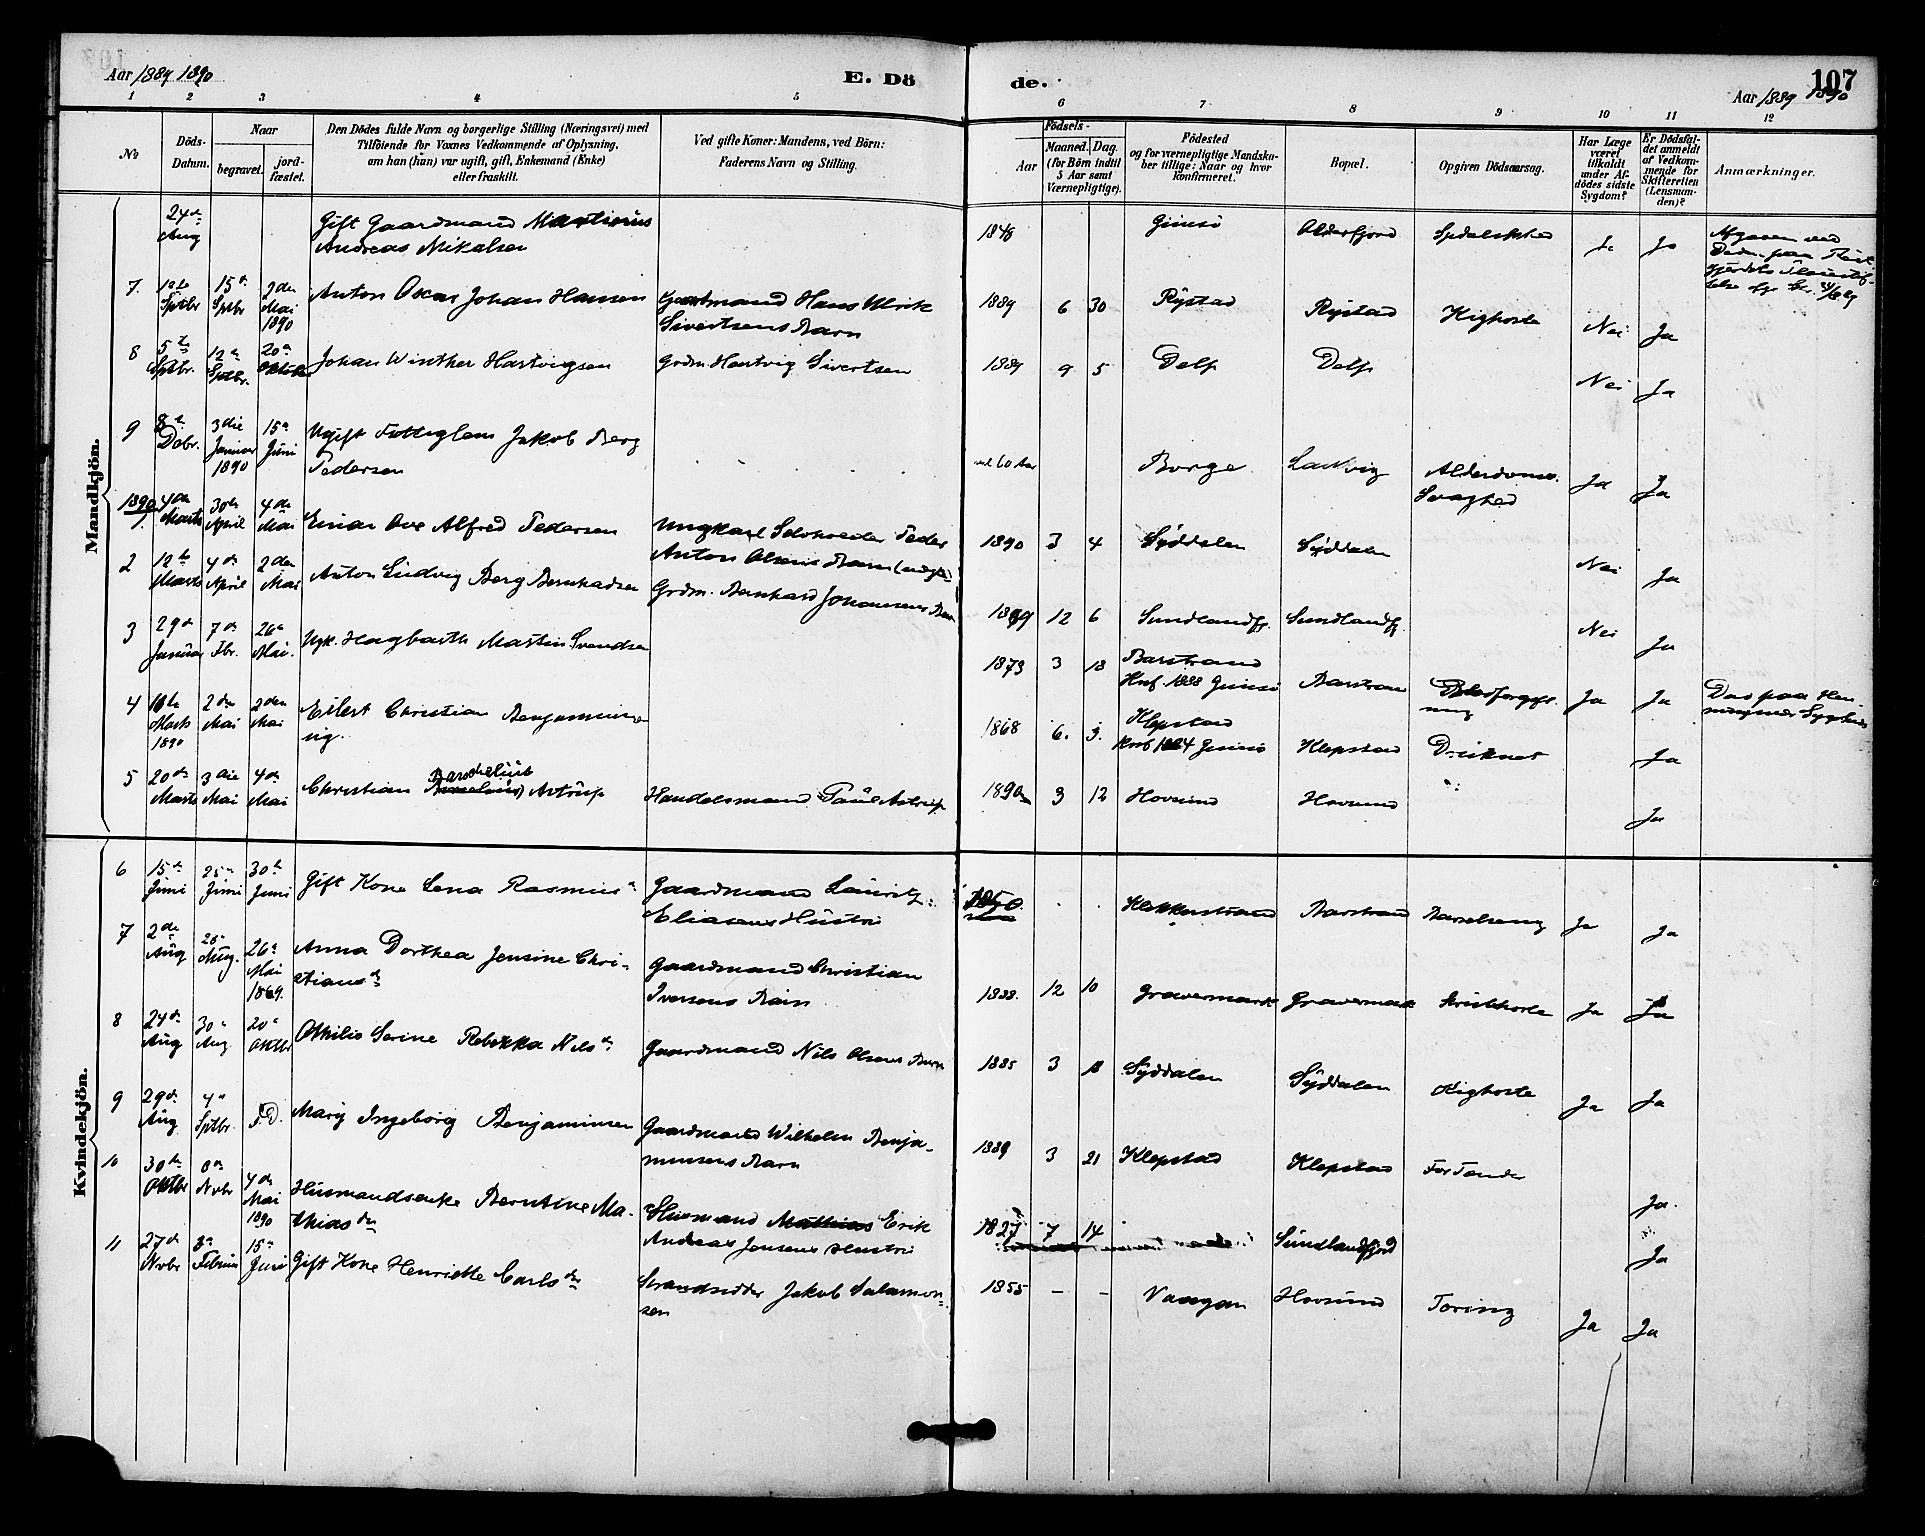 Aar 1889 1890
E. Dö
de.
107
Aar 1889 1890
1 2 3 4 5 6 7 8 9 10 11 12
No
Döds-
Datum.
Naar
begravet.
jord-
fæstet.
Den Dödes fulde Navn og borgerlige Stilling (Næringsvei) med
Tilföiende for Voxnes Vedkommende af Oplysning,
om han (hun) var ugift, gift, Enkemand (Enke)
eller fraskilt.
Ved gifte Koner: Mandens, ved Börn:
Faderens Navn og Stilling.
Födsels-
Aar
Maaned. Dag.
(for Börn indtil
5 Aar samt
Værnepligtige).
Födested
og for værnepligtige Mandska-
ber tillige: Naar og hvor
konfirmeret.
Bopæl.
Opgiven Dödsaarsag.
Har Læge
været
tilkaldt
under Af-
dödes sidste
Sygdom?
Er Dödsfal-
det anmeldt
af Vedkom-
mende for
Skifteretten
(Lensman-
den)?
Anmærkninger.
Mandkjön.
24de Aug
Gift Gaardmand Martinius
Andreas Mikalsen
Gimsö
Alderfjord
Spedalskhed
Ja
7. 15de Sptbr 2den Mai 1890
Anton Oscar Johan Hansen
Gaardmand Hans Ulrik
Sivertsens Barn
1889 6 30 Rystad Rystad Kighoste Nei Ja
8 5te Sptbr. 12te Sptbr. 20de Oktober
Johan Winther Hartvigsen
Grdm. Hartvig Sivertsen
1889 9 5 Delp Delp Nei Ja
9 8de Debr. 3die Januar 1890 15de Juni
Ugift Fattiglem Jakob Berg
Pedersen
60 Aar Borge Alderdoms-
Svaghed
Ja Ja
1890
1. 4de Marts 30te April 4de Mai
Einar Ove Alfred Pedersen
Ungkarl Peder
Anton Olsens Barn
1890 3 4 Syddalen Syddalen Nei Ja
2 12te Marts 4de April 2den Mai
Anton Ludvig Berg Bernhardsen
Grdm. Bernhard Johansens Barn
12 6 Sundlandfj. Sundlandfj. Nei Ja
3 29de Januar 7de Fbr. 26de Mai.
Ugk. Hagbarth Martin Svendsen
1873 3 18 Barstrand
Knf. 1888 Gimsö
Barstrand
Ja Ja
4 Marts 1890 2den Mai 2den Mai
Eilert Christian Benjaminsen
ug.
1868 6. 3. Klepstad
Knf 1884 Gimsö
Klepstad Druknet Ja
5 20de Marts 3die Mai 4de Mai
Christian Astrup
Handelsmand Paul Astrup
1890 3 12 Hovsund Hovsund Ja
Kvindekjön.
6 15de Juni 25de Juni 30te Juni
Gift Kone Lena Rasmusd.
Gaardmand Lauritz
Eliasens Hustru
Klokkerstrand Barstrand Barselseng Ja Ja
7 2den Aug Aug. 26de Mai
Anna Dorthea Jensine Chri-
stiansd.
Gaardmand Christian
Iversens Barn
1888. 12 10 Gravermark Gravermark Ja Ja
8 24de Aug 30te Aug 20de Oktbr
Othilie Serine Rebekka Nilsd.
Gaardmand Nils Olsens Barn
1885 3 18 Syddalen Syddalen Kighoste Ja Ja
9 29de Aug 4de Sptbr. S.D.
Mary Ingeborg Benjaminsen
Gaardmand Wilhelm Benja-
minsens Barn
1889 3 21 Klepstad Klepstad For Tænder Ja.
10 30te Oktbr Novbr 4de Mai 1890
Husmandsenke Berntine Ma-
thiasd.
Husmand Erik
Andreas Jensens Hustru
1827 7 14 Sundlandfjord Ja
11 27de Novbr Februar 15de Juni
Gift Kone Henriette Carlsd.
Strandsidder Jakob Salamon-
sen
1855 – – Vaagan Hovsund Tæring Ja Ja